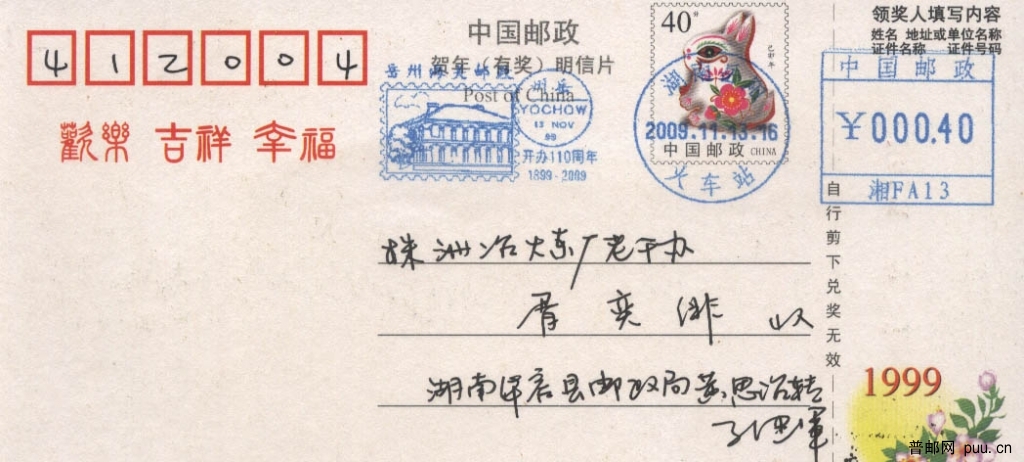 412004
歡樂 吉祥 幸福
中国邮政
贺年(有奖)明信片
Post of China
岳州
YOCHOW
13 NOV
99
开办110周年
1899-2009
40
己卯年
中国邮政 CHINA
湖南
2009.11.13.16
火车站
领奖人填写内容
姓名 地址或单位名称
证件名称 证件号码
中国邮政
¥000.40
湘FA13
自行剪下兑奖无效
株洲冶炼厂老干办
胥奕绯 收
湖南 县邮政局
1999
普邮网 puu.cn